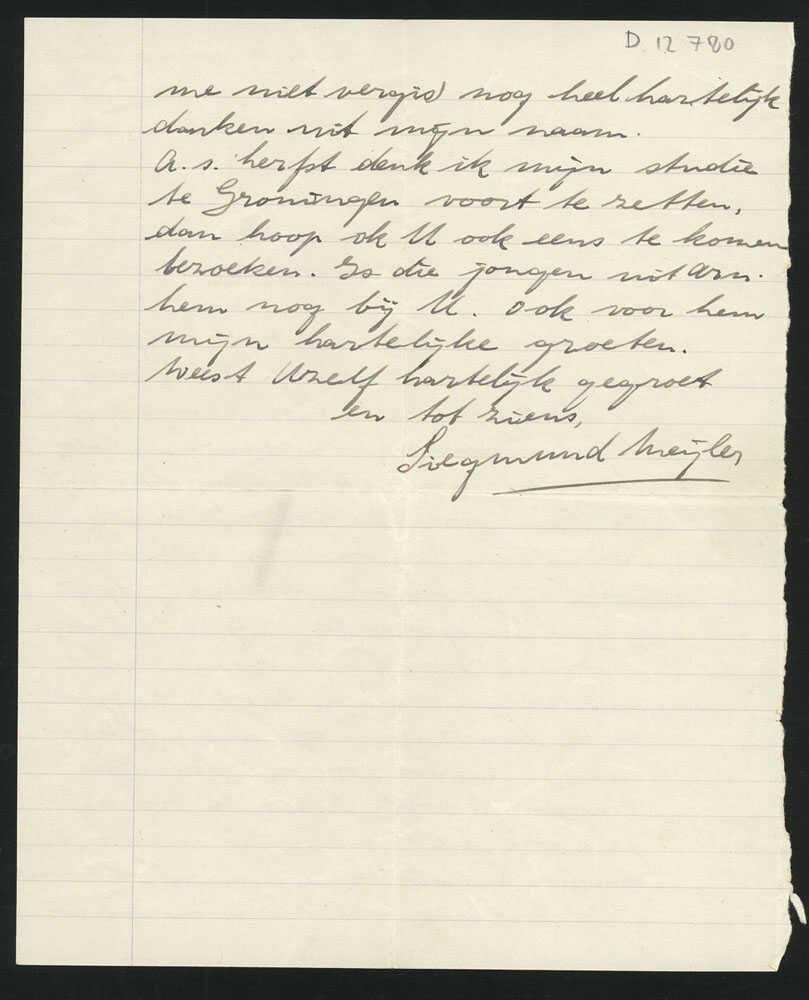 D. 12 780
me niet vergis) nog heel hartelijk
danken uit mijn naam.
A.s. herfst denk ik mijn studie
te Groningen voort te zetten,
dan hoop ik U ook eens te komen
bezoeken. Is die jongen uit Arn-
hem nog bij U. Ook voor hem
mijn hartelijke groeten.
Weest Uzelf hartelijk gegroet
en tot ziens,
Siegmund Meijler